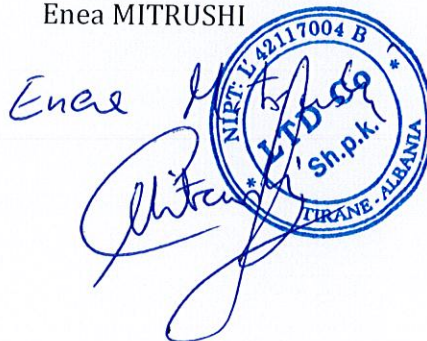 Enea MITRUSHI
Enea Mitrushi
NIPT: L 42117004 B *
LTD Co
Sh.p.k.
* TIRANE - ALBANIA